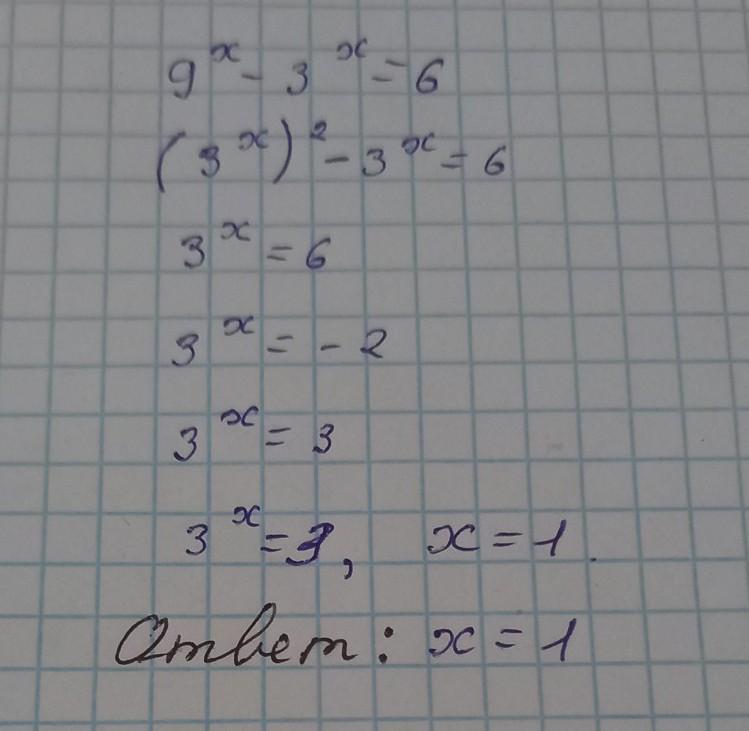 9^x - 3^x = 6
(3^x)^2 - 3^x = 6
3^x = 6
3^x = - 2
3^x = 3
3^x = 3, x = 1.
Ответ: x = 1